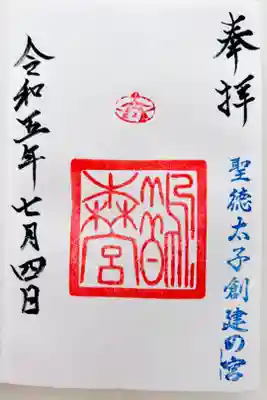 奉拝
聖徳太子創建の宮
鵲
森宮
令和五年七月四日